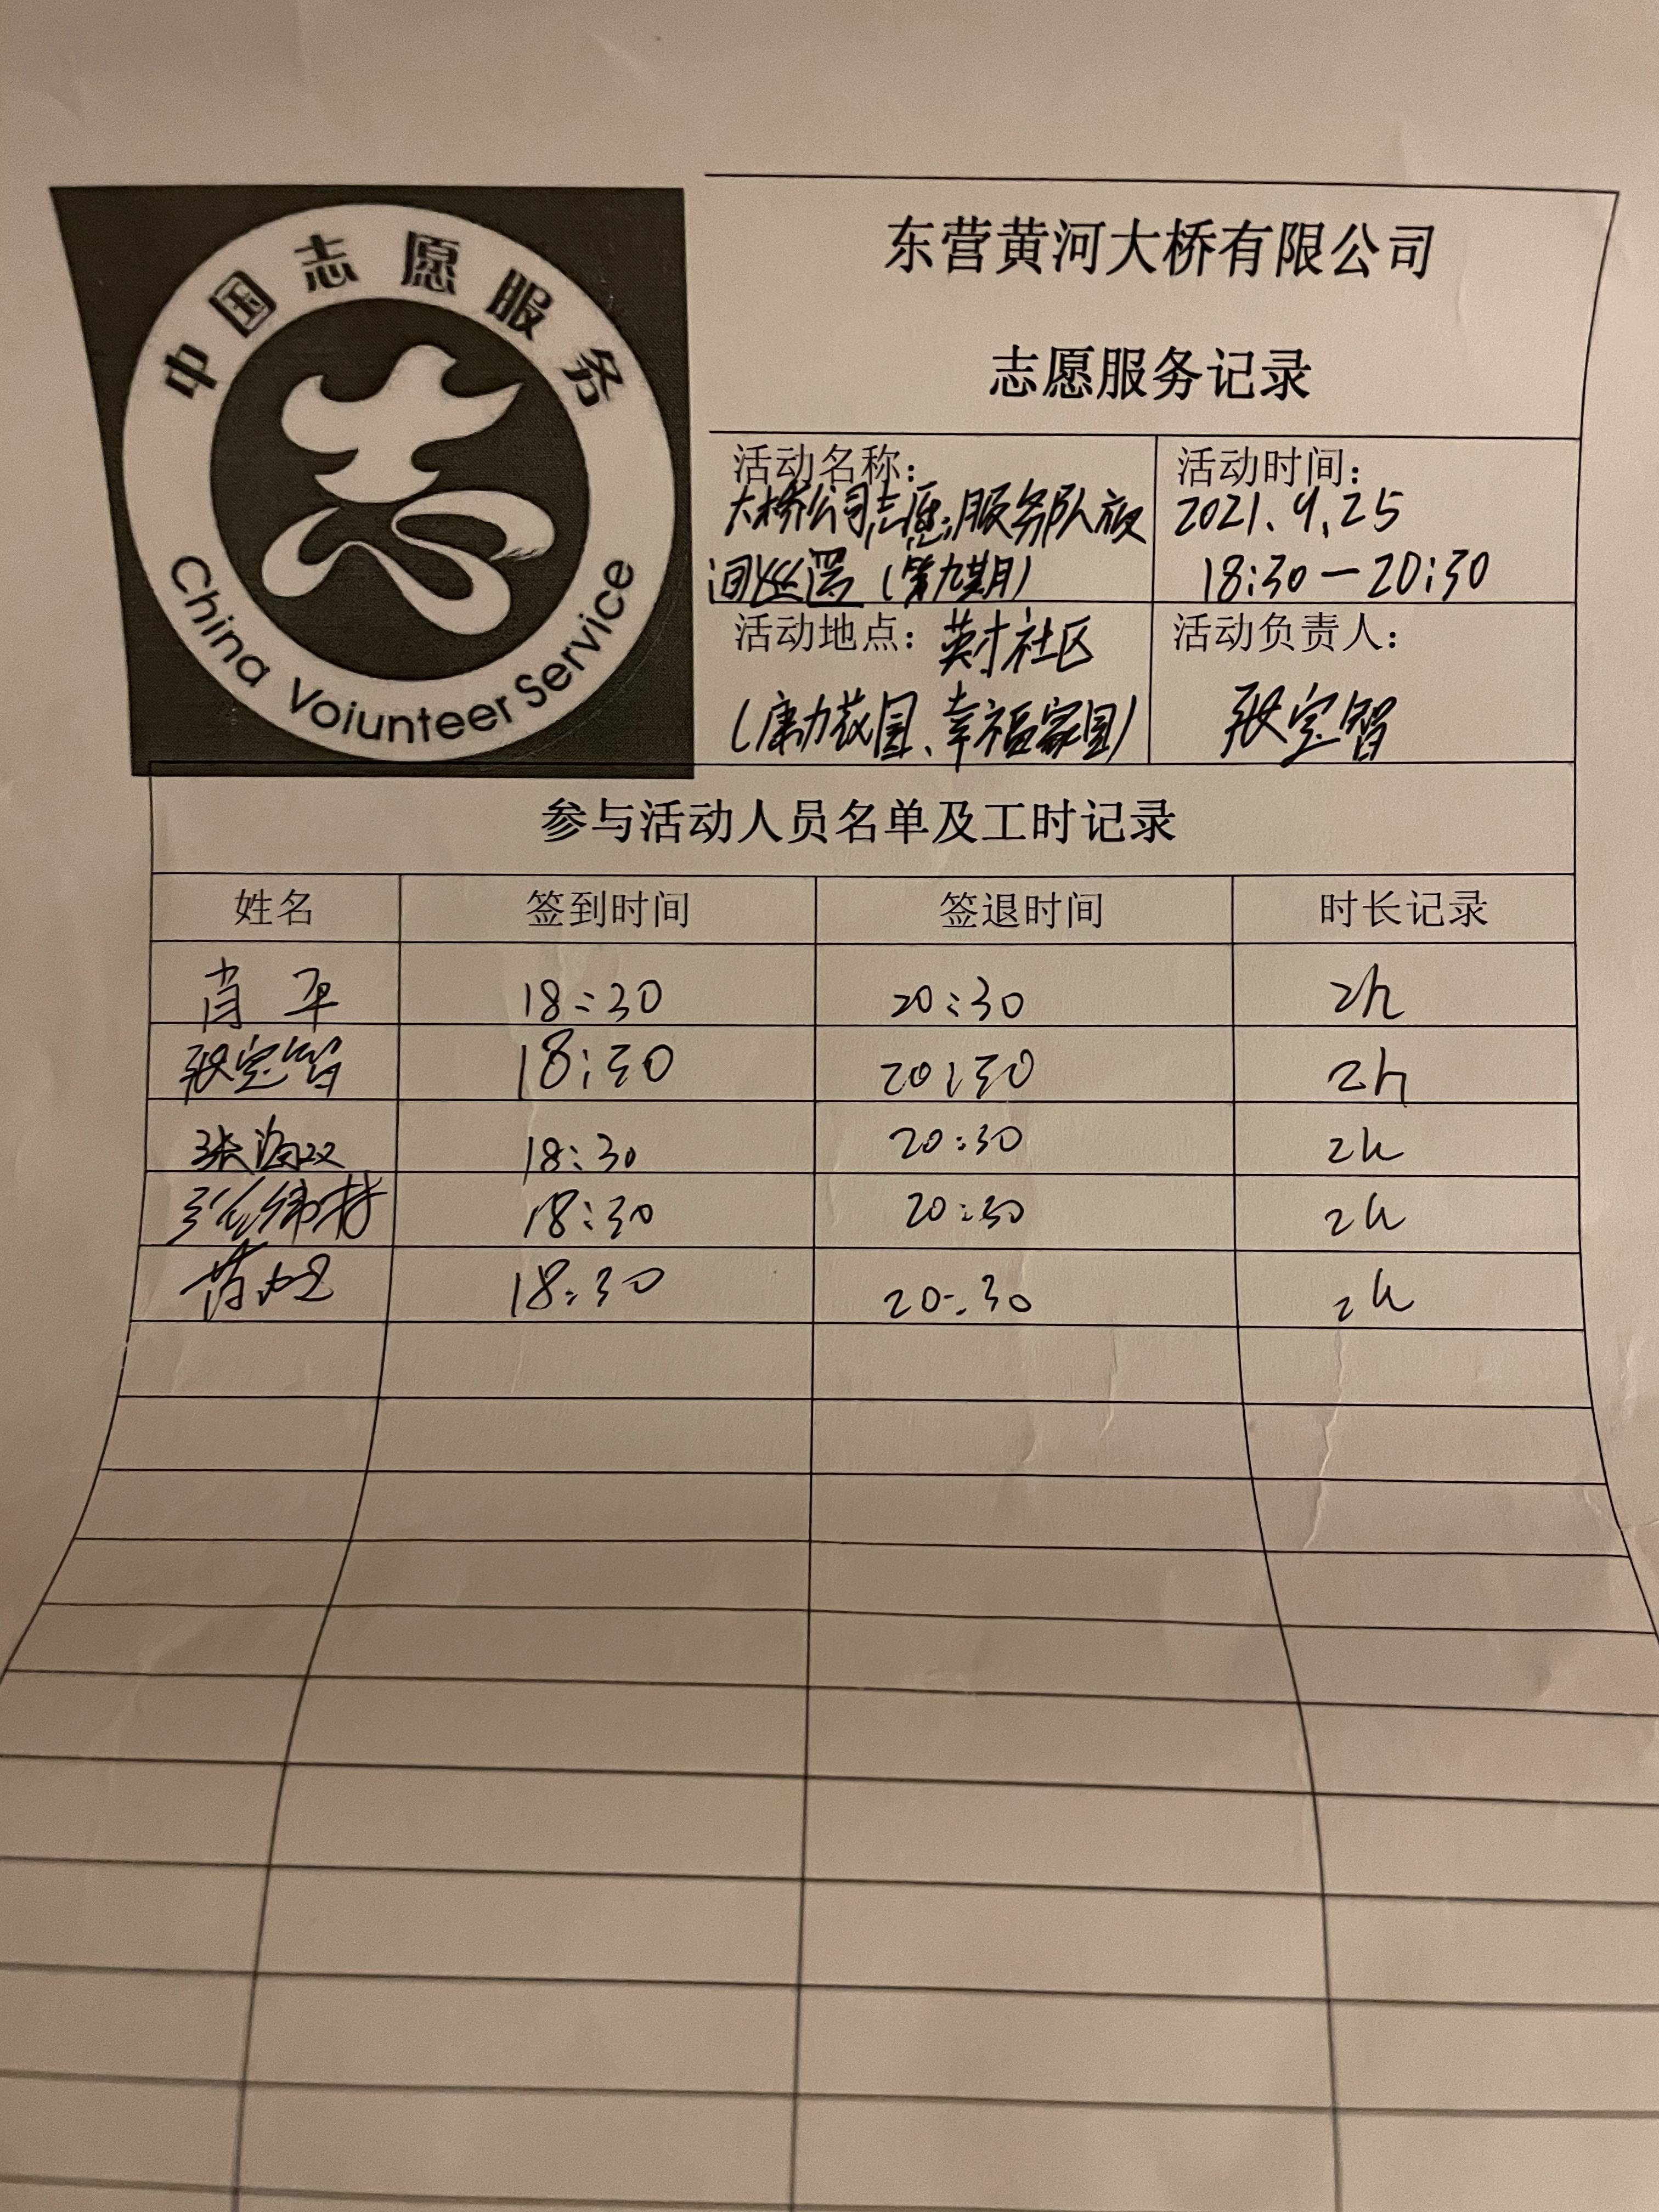 中国志愿服务
China Voiunteer Service
东营黄河大桥有限公司
志愿服务记录
活动名称：
大桥公司志愿服务队夜
间巡逻（第九期）
活动时间：
2021.9.25
18:30—20:30
活动地点：英才社区
（康力花园、幸福家园）
活动负责人：
张宝智
参与活动人员名单及工时记录
姓名 签到时间 签退时间 时长记录
肖平 18:30 20:30 2h
张宝智 18:30 20:30 2h
张海双 18:30 20:30 2h
18:30 20:30 2h
18:30 20:30 2h